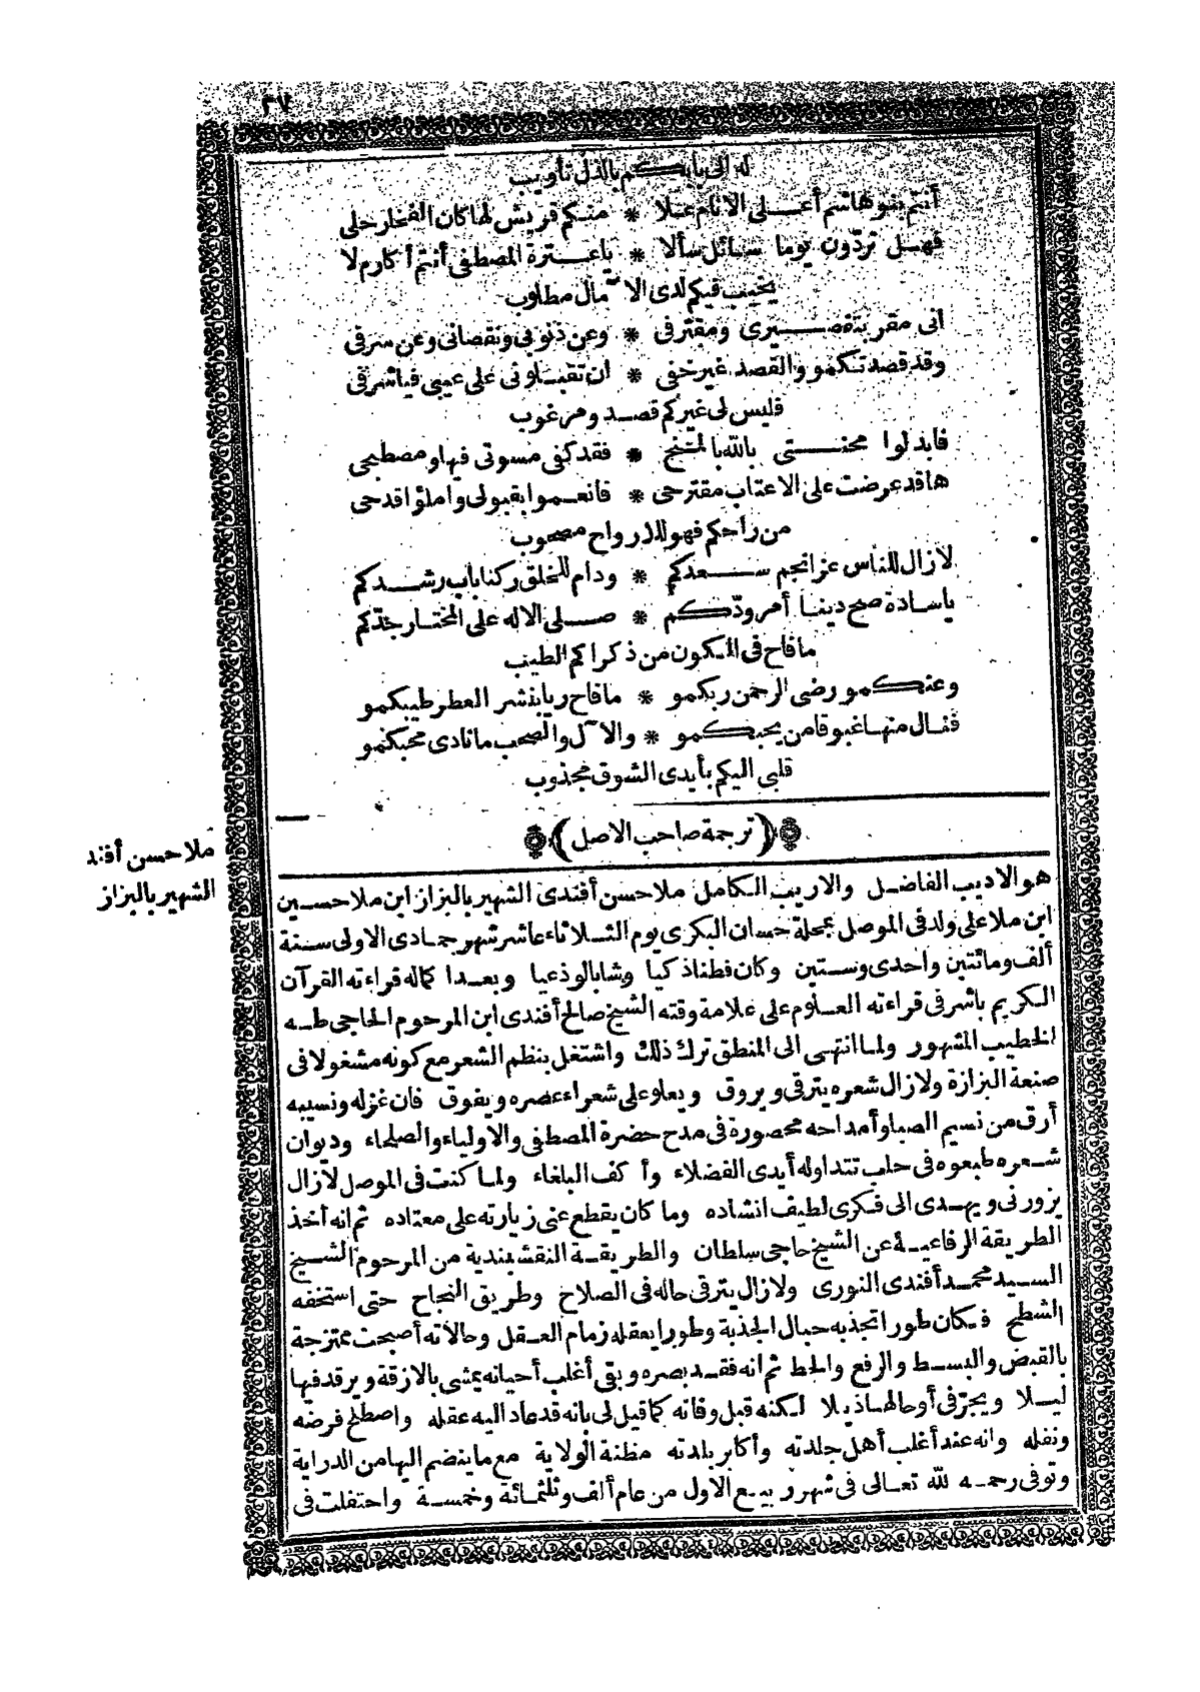 ٣٧
له الى بابكم بالذل تأويب
أنتم بنو هاشم أعلى الانام علا * منكم قريش لها كان الفخار حلى
فهل تردّون يوما سائل سألا * ياعترة المصطفى أنتم أكارم لا
يخيب فيكم لدى الآمال مطلوب
انى مقر بتقصيرى ومقترفى * وعن ذنوبى ونقصانى وعن سرفى
وقد قصدتكمو والقصد غير خفى * ان تقبلونى على عيبى فياشرفى
فليس لى غيركم قصد ومرغوب
فابدلوا محنتى بالله بالمنح * فقد كفى مسوتى فيها ومصطبحى
ها قد عرضت على الاعتاب مقترحى * فانعموا بقبولى واملؤا قدحى
من راحكم فهو للارواح مصحوب
لازال للناس عزا نجم سعدكم * ودام للخلق ركنا باب رشدكم
ياسادة صح دينا أمر ودّكم * صلى الاله على المختار جدّكم
مافاح فى الكون من ذكراكم الطيب
وعنكمو رضى الرحمن ربكمو * مافاح ريا بنشر العطر طيبكمو
فنال منها غبوقا من يحبكمو * والآل والصحب مانادى محبكمو
قلبى اليكم بأيدى الشوق مجذوب
(ترجمة صاحب الاصل)
ملا حسن أفند
الشهير بالبزاز
هو الاديب الفاضل والاريب الكامل ملا حسن أفندى الشهير بالبزاز ابن ملا حسين
ابن ملا على ولد فى الموصل بمحلة حسان البكرى يوم الثلاثاء عاشر شهر جمادى الاولى سنة
ألف ومائتين واحدى وستين وكان فطنا ذكيا وشابا لوذعيا وبعد اكماله قراءته القرآن
الكريم باشر فى قراءته العلوم على علامة وقته الشيخ صالح أفندى ابن المرحوم الحاجى طه
الخطيب المشهور ولما انتهى الى المنطق ترك ذلك واشتغل بنظم الشعر مع كونه مشغولا فى
صنعة البزازة ولازال شعره يترقى ويروق ويعلو على شعراء عصره ويفوق فان غزله ونسيبه
أرق من نسيم الصبا وأمداحه محصورة فى مدح حضرة المصطفى والاولياء والصلحاء وديوان
شعره طبعوه فى حلب تتداوله أيدى الفضلاء وأكف البلغاء ولما كنت فى الموصل لازال
يزورنى ويهدى الى فكرى لطيف انشاده وما كان يقطع عنى زيارته على معتاده ثم انه أخذ
الطريقة الرفاعية عن الشيخ حاجى سلطان والطريقة النقشبندية من المرحوم الشيخ
السيد محمد أفندى النورى ولازال يترقى حاله فى الصلاح وطريق النجاح حتى استخفه
الشطح فكان طورا تجذبه حبال الجذبة وطورا يعقله زمام العقل وحالاته أصبحت ممتزجة
بالقبض والبسط والرفع والحط ثم انه فقد بصره وبقى أغلب أحيانه يمشى بالازقة ويرقد فيها
ليلا ويجرّ فى أوحالها ذيلا لكنه قبل وفاته كما قيل لى بانه قد عاد اليه عقله واصطلح فرضه
ونفله وانه عند أغلب أهل جلدته وأكابر بلدته مظنة الولاية مع ماينضم اليها من الدراية
وتوفى رحمه الله تعالى فى شهر ربيع الاول من عام ألف وثلثمائة وخمسة واحتفلت فى